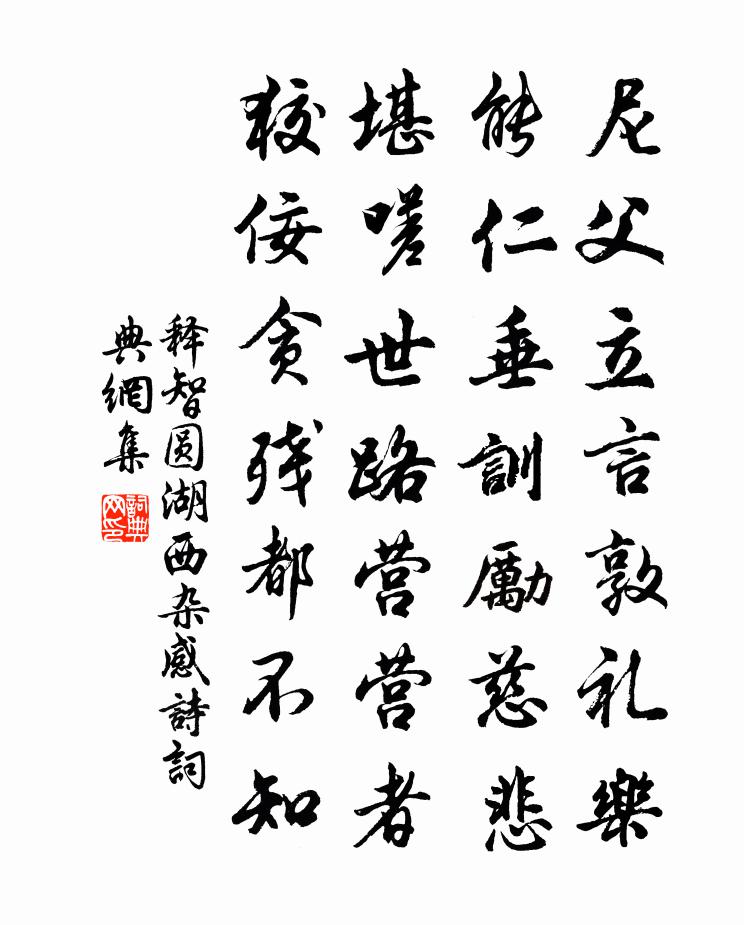 尼父立言敦礼樂
能仁垂訓勵慈悲
堪嗟世路营营者
狡佞贪残都不知
释智圆湖西杂感詩詞
典網集
詞典网印